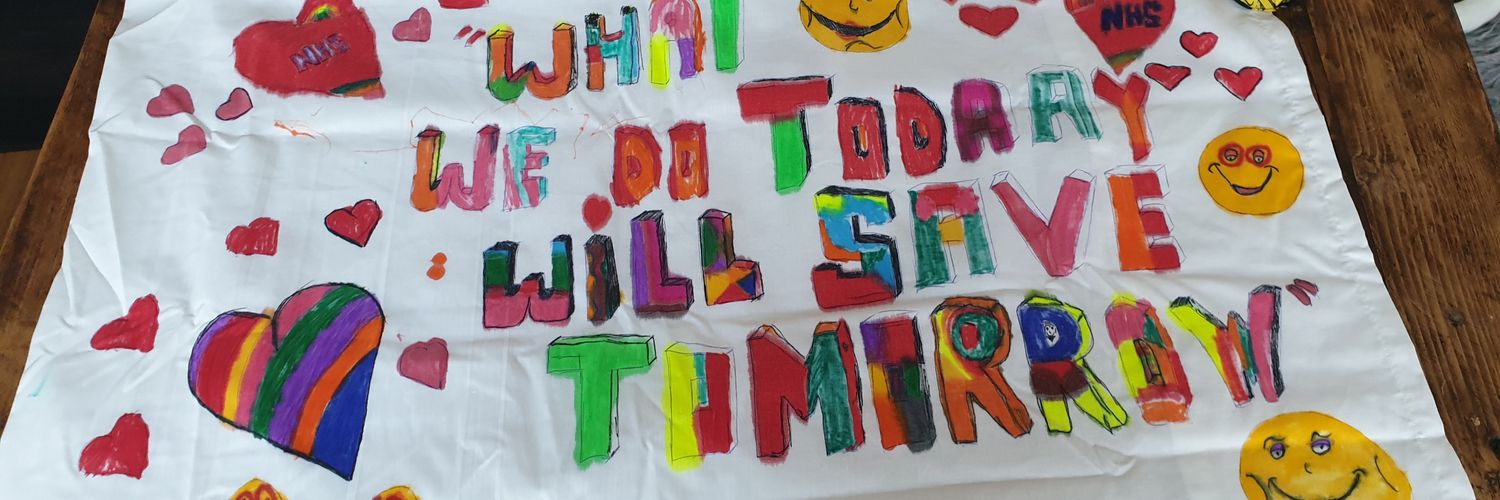 NHS
NHS
"WHAT
WE DO TODAAY
WiLL SAVE
TOMORROW"